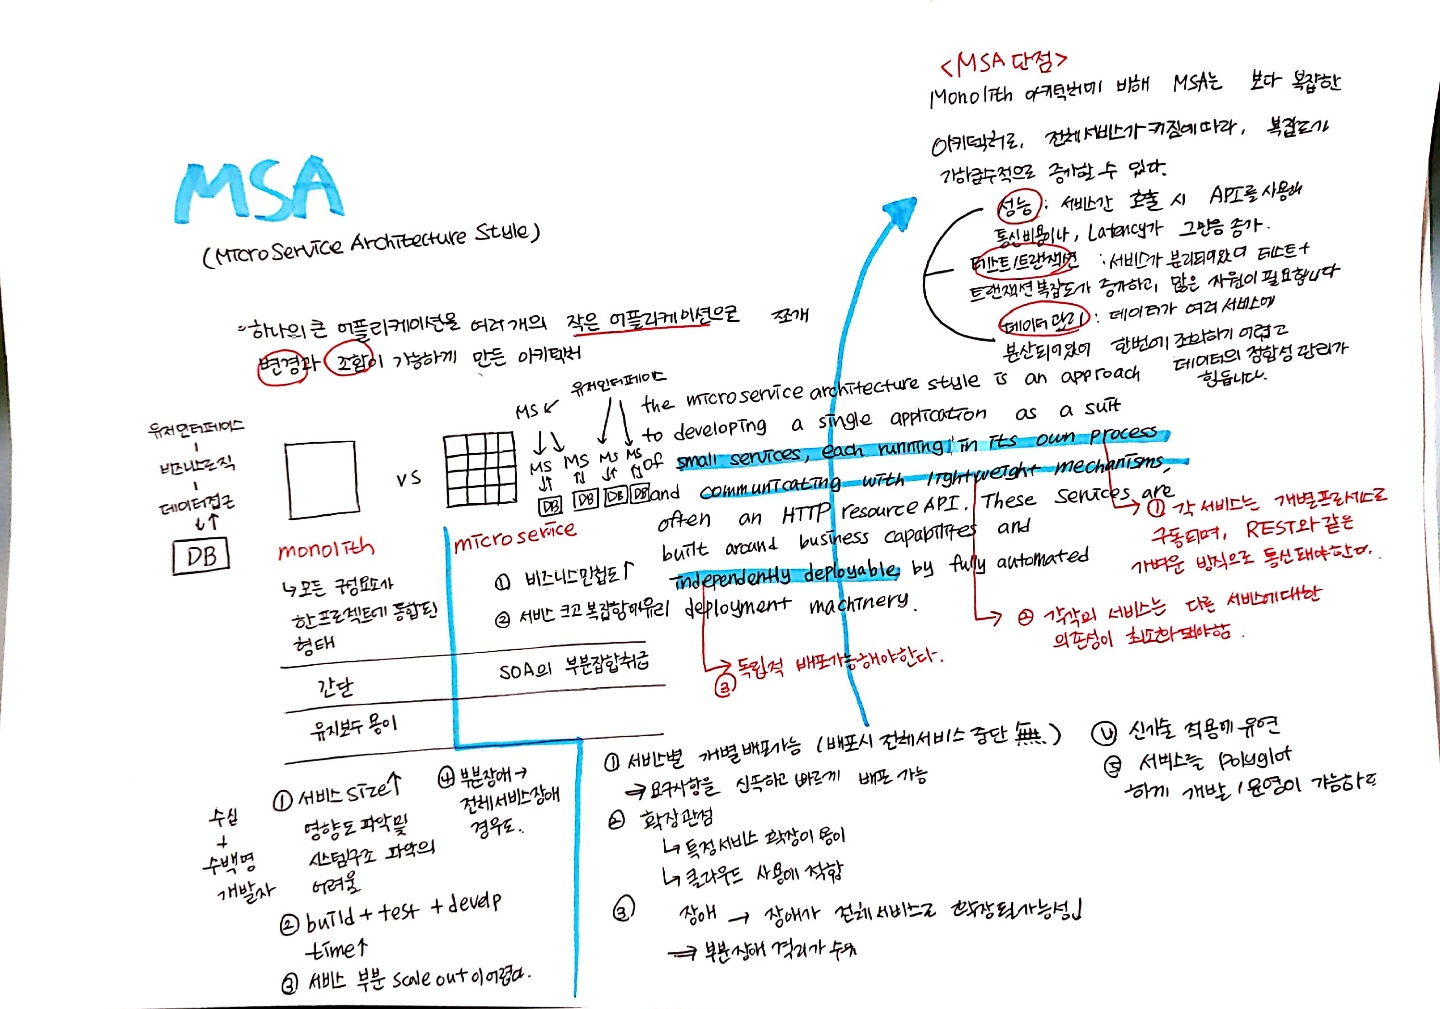 MSA
(MicroService Architecture Style)
"하나의 큰 어플리케이션을 여러개의 작은 어플리케이션으로 쪼개
변경과 조합이 가능하게 만든 아키텍처
<MSA 단점>
Monolith 아키텍처에 비해 MSA는 보다 복잡한
아키텍처로, 전체 서비스가 커짐에 따라, 복잡도가
기하급수적으로 증가할 수 있다.
성능 : 서비스간 호출 시 API를 사용해
통신비용이나, Latency가 그만큼 증가.
테스트/트랜잭션 : 서비스가 분리되어있어 테스트+
트랜잭션 복잡도가 증가하고, 많은 자원이 필요합니다
데이터 관리 : 데이터가 여러 서비스에
분산되어있어 한번에 조회하기 어렵고
데이터의 정합성 관리가
힘듭니다.
유저인터페이스
비즈니스로직
데이터접근
DB
VS
유저인터페이스
MS
MS MS MS MS
DB DB DB DB
the microservice architecture style is an approach
to developing a single application as a suit
of small services, each running in its own process
and communicating with lightweight mechanisms,
often an HTTP resource API. These services are
built around business capabilities and
independently deployable by fully automated
deployment machinery.
① 각 서비스는 개별 프라세스로
구동되며, REST와 같은
가벼운 방식으로 통신돼야한다.
② 각각의 서비스는 다른 서비스에 대한
의존성이 최소화돼야함.
③ 독립적 배포가능해야한다.
monolith
↳ 모든 구성요소가
한 프로젝트에 통합된
형태
간단
유지보수 용이
microservice
① 비즈니스민첩도↑
② 서비스 크고 복잡할때유리
SOA의 부분집합취급
수십
+
수백명
개발자
① 서비스 size↑
영향도 파악및
시스템구조 파악의
어려움
② build + test + develp
time↑
③ 서비스 부분 scale out이 어렵다.
④ 부분장애→
전체서비스장애
경우도.
① 서비스별 개별배포가능 (배포시 전체서비스 중단 無.)
⇒ 요구사항을 신속하고 빠르게 배포 가능
② 확장관점
↳ 특정서비스 확장이 용이
↳ 클라우드 사용에 적합
③ 장애 → 장애가 전체서비스로 확장될가능성↓
⇒ 부분장애 격리가 수월
④ 신기술 적용에 유연
⑤ 서비스를 polyglot
하게 개발/운영이 가능하도